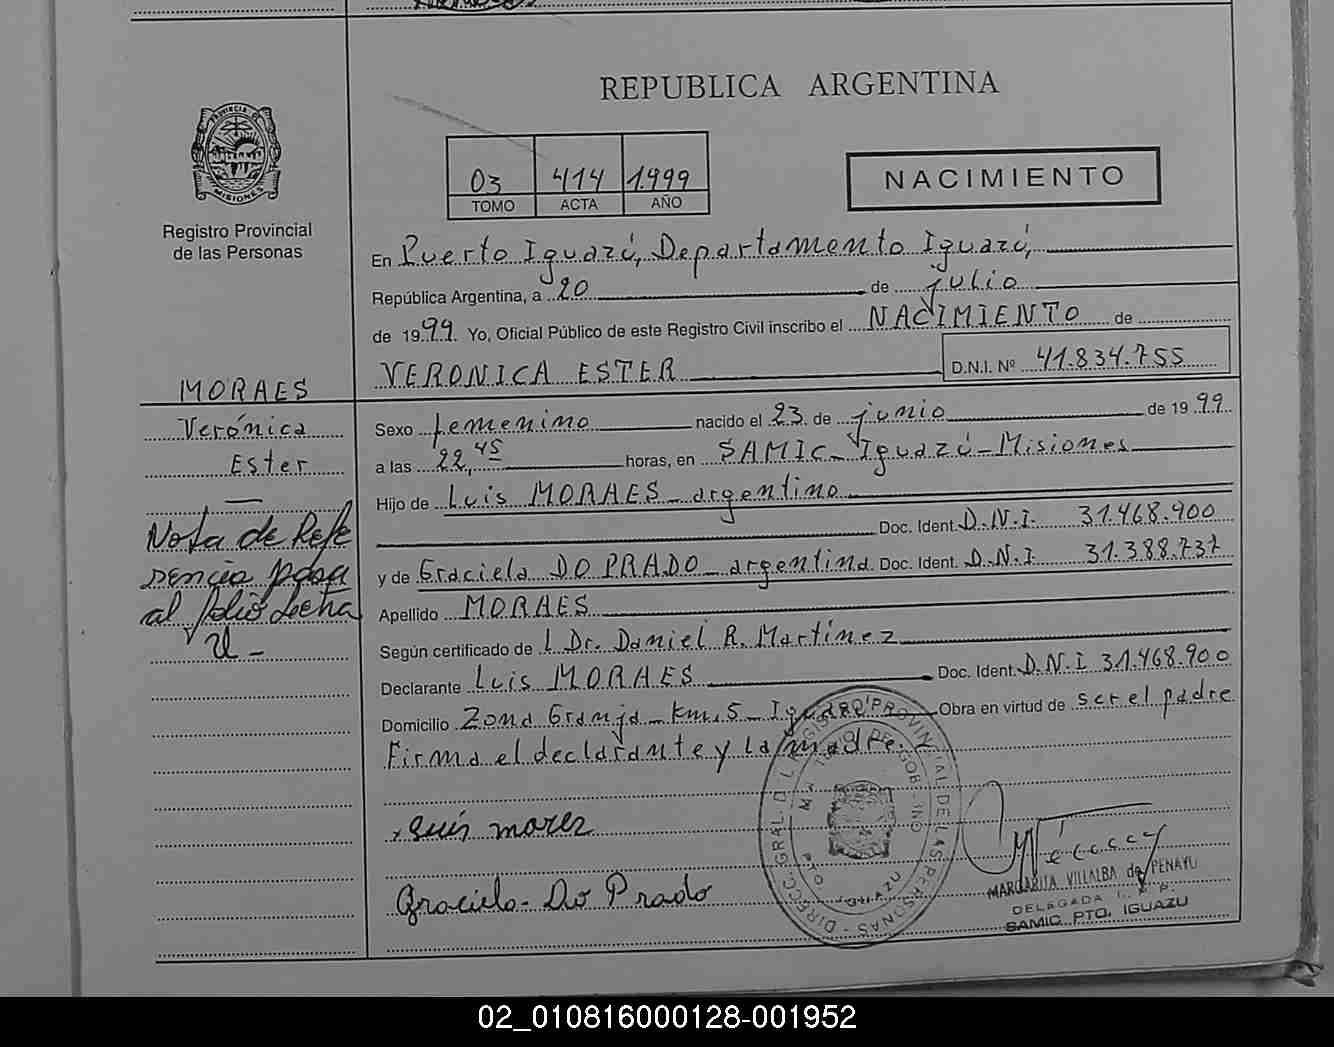 REPUBLICA ARGENTINA
PROVINCIA DE
MISIONES
Registro Provincial
de las Personas
03 414 1.999
TOMO ACTA AÑO
NACIMIENTO
En Puerto Iguazú, Departamento Iguazú,
República Argentina, a 20 de julio
de 1999. Yo, Oficial Público de este Registro Civil inscribo el NACIMIENTO de
VERONICA ESTER D.N.I. Nº 41.834.755
MORAES
Verónica
Ester
Nota de Refe
rencia pasa
al folio Letra
U -
Sexo femenino nacido el 23 de junio de 1999
a las 22,45 horas, en SAMIC - Iguazú - Misiones
Hijo de Luis MORAES - argentino
Doc. Ident. D.N.I. 31.468.900
y de Graciela DO PRADO - argentina Doc. Ident. D.N.I 31.388.737
Apellido MORAES
Según certificado de l Dr. Daniel R. Martínez
Declarante Luis MORAES Doc. Ident. D.N.I 31.468.900
Domicilio Zona Granja - Km. 5 - Iguazú Obra en virtud de ser el padre
Firma el declarante y la madre.
Luis
Graciela Do Prado
MARGARITA VILLALBA de PENAYU
DELEGADA
SAMIC PTO. IGUAZU
02_010816000128-001952